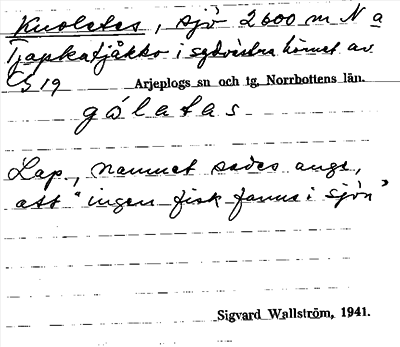 Kuoletes, sjö 2600 m N a
Tjapkatjåkko i sydvästra hörnet av
C519 Arjeplogs sn och tg, Norrbottens län.
gólatas
Lap., namnet sades ange,
att "ingen fisk fanns i sjön"
Sigvard Wallström, 1941.